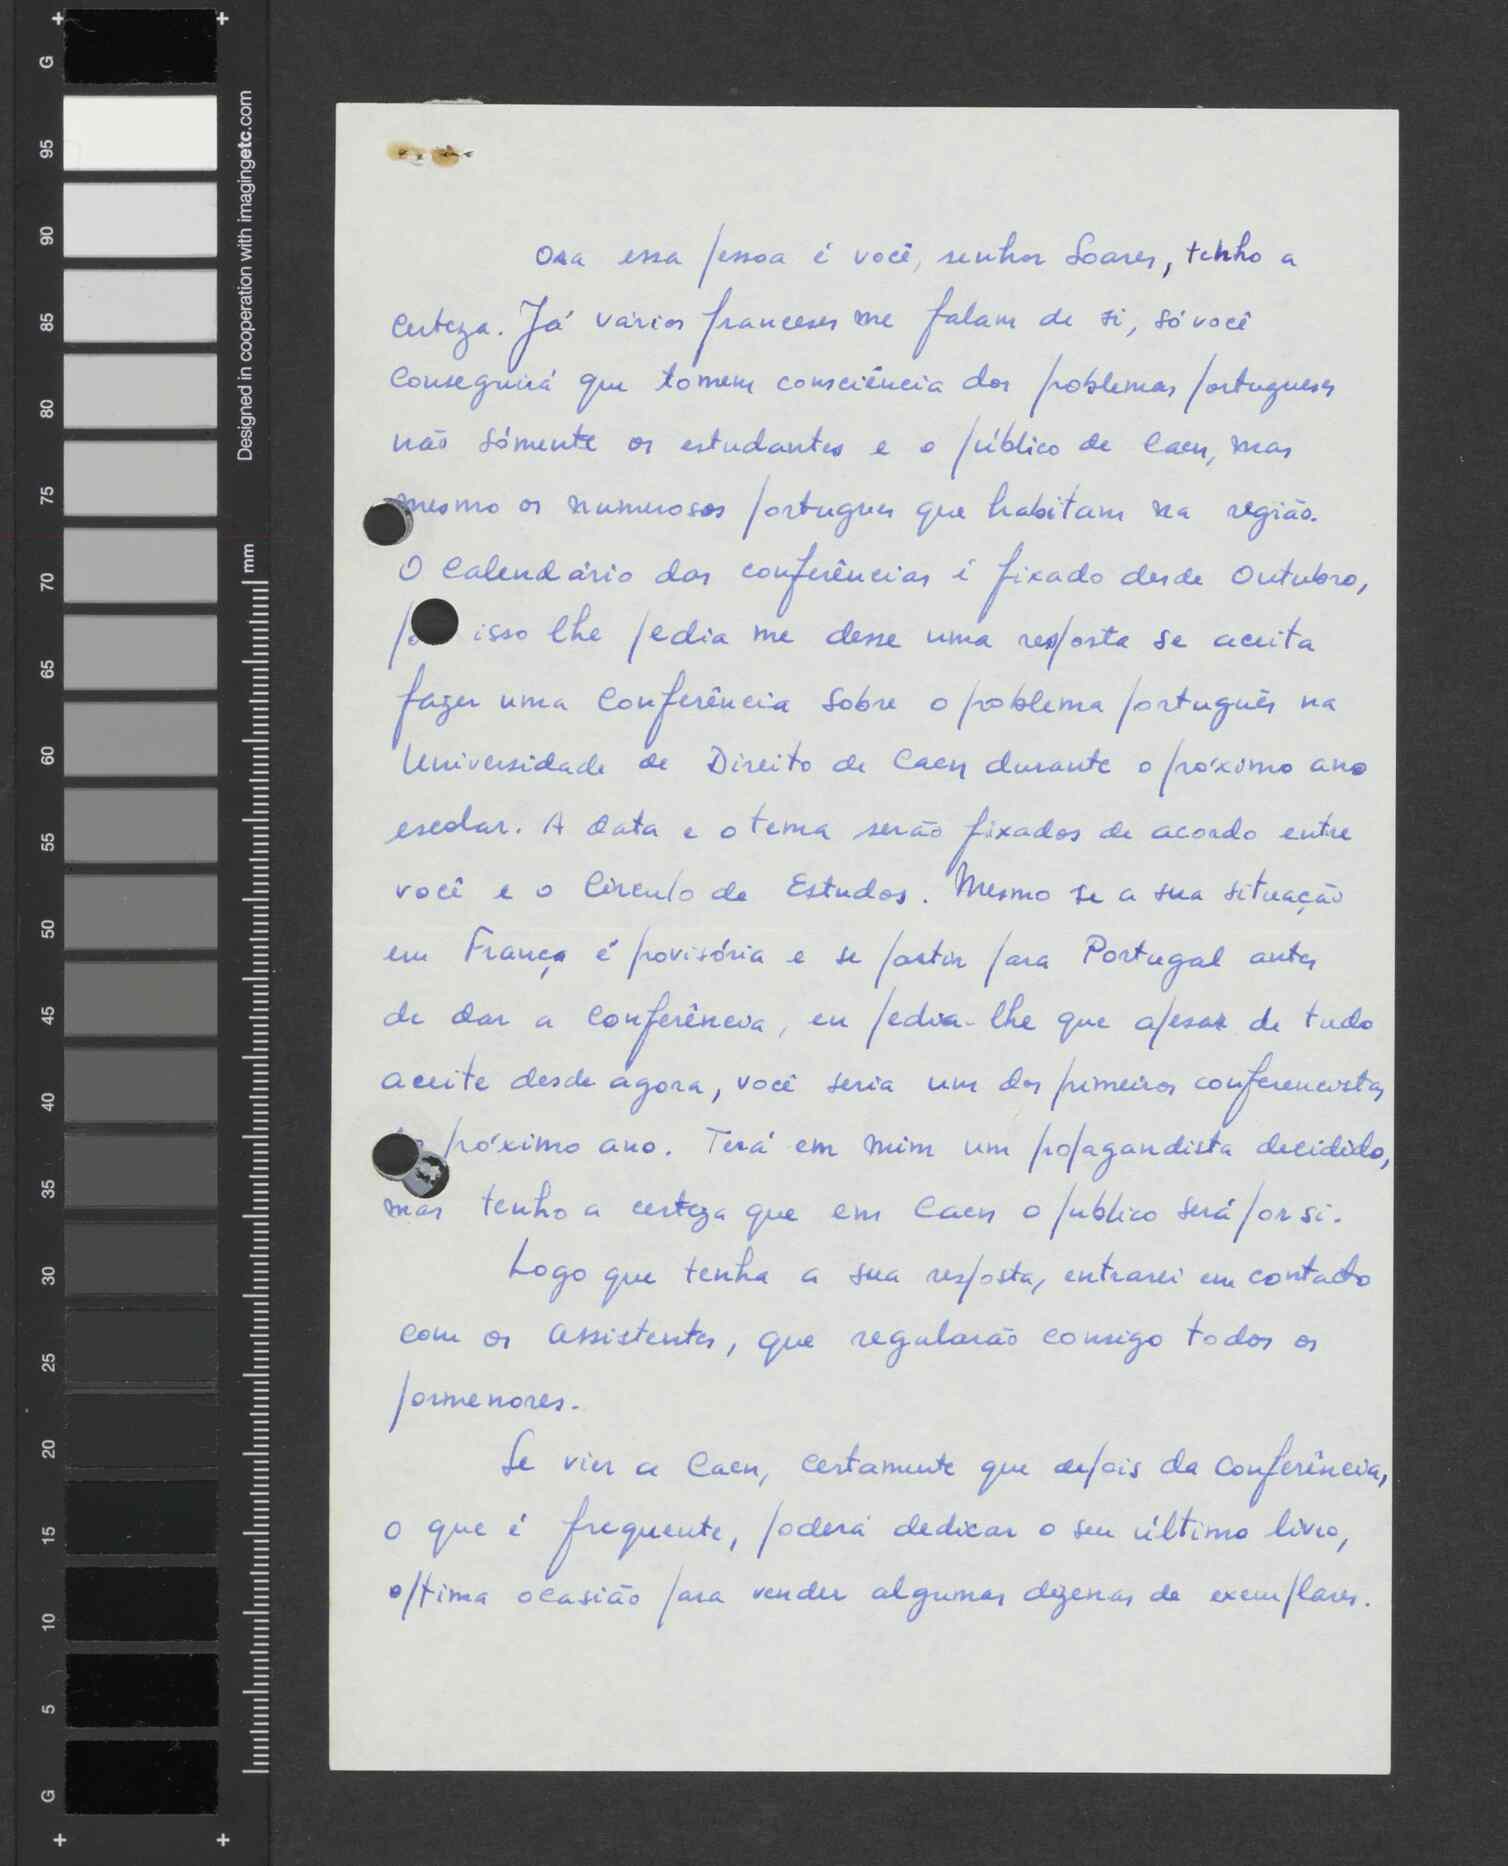 Ora essa pessoa é você, senhor Soares, tenho a
certeza. Já vários franceses me falam de si, só você
conseguirá que tomem consciência dos problemas portugueses
não sómente os estudantes e o público de Caen, mas
mesmo os numerosos portugues que habitam na região.
O calendário das conferências é fixado desde Outubro,
isso lhe pedia me desse uma resposta se aceita
fazer uma conferência sobre o problema português na
Universidade de Direito de Caen durante o próximo ano
escolar. A data e o tema serão fixados de acordo entre
você e o Círculo de Estudos. Mesmo se a sua situação
em França é provisória e se partir para Portugal antes
de dar a conferência, eu pedia-lhe que apesar de tudo
aceite desde agora, você seria um dos primeiros conferencistas
próximo ano. Terá em mim um propagandista decidido,
mas tenho a certeza que em Caen o publico será por si.
Logo que tenha a sua resposta, entrarei em contacto
com os assistentes, que regularão consigo todos os
pormenores.
Se vier a Caen, certamente que depois da conferência,
o que é frequente, poderá dedicar o seu último livro,
optima ocasião para vender algumas dezenas de exemplares.
Designed in cooperation with imagingetc.com
mm
G
95
90
85
80
75
70
65
60
55
50
45
40
35
30
25
20
15
10
5
G